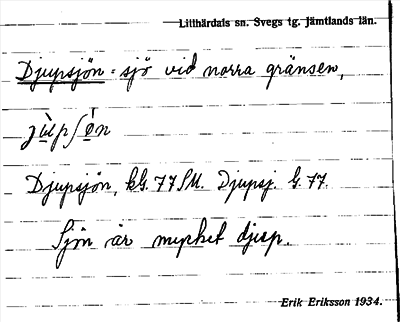 Lillhärdals sn. Svegs tg. Jämtlands län.
Djupsjön = sjö vid norra gränsen,
Djupsjön, kG. 77 SU. Djupsj. G. 77.
Sjön är mycket djup.
Erik Eriksson 1934.